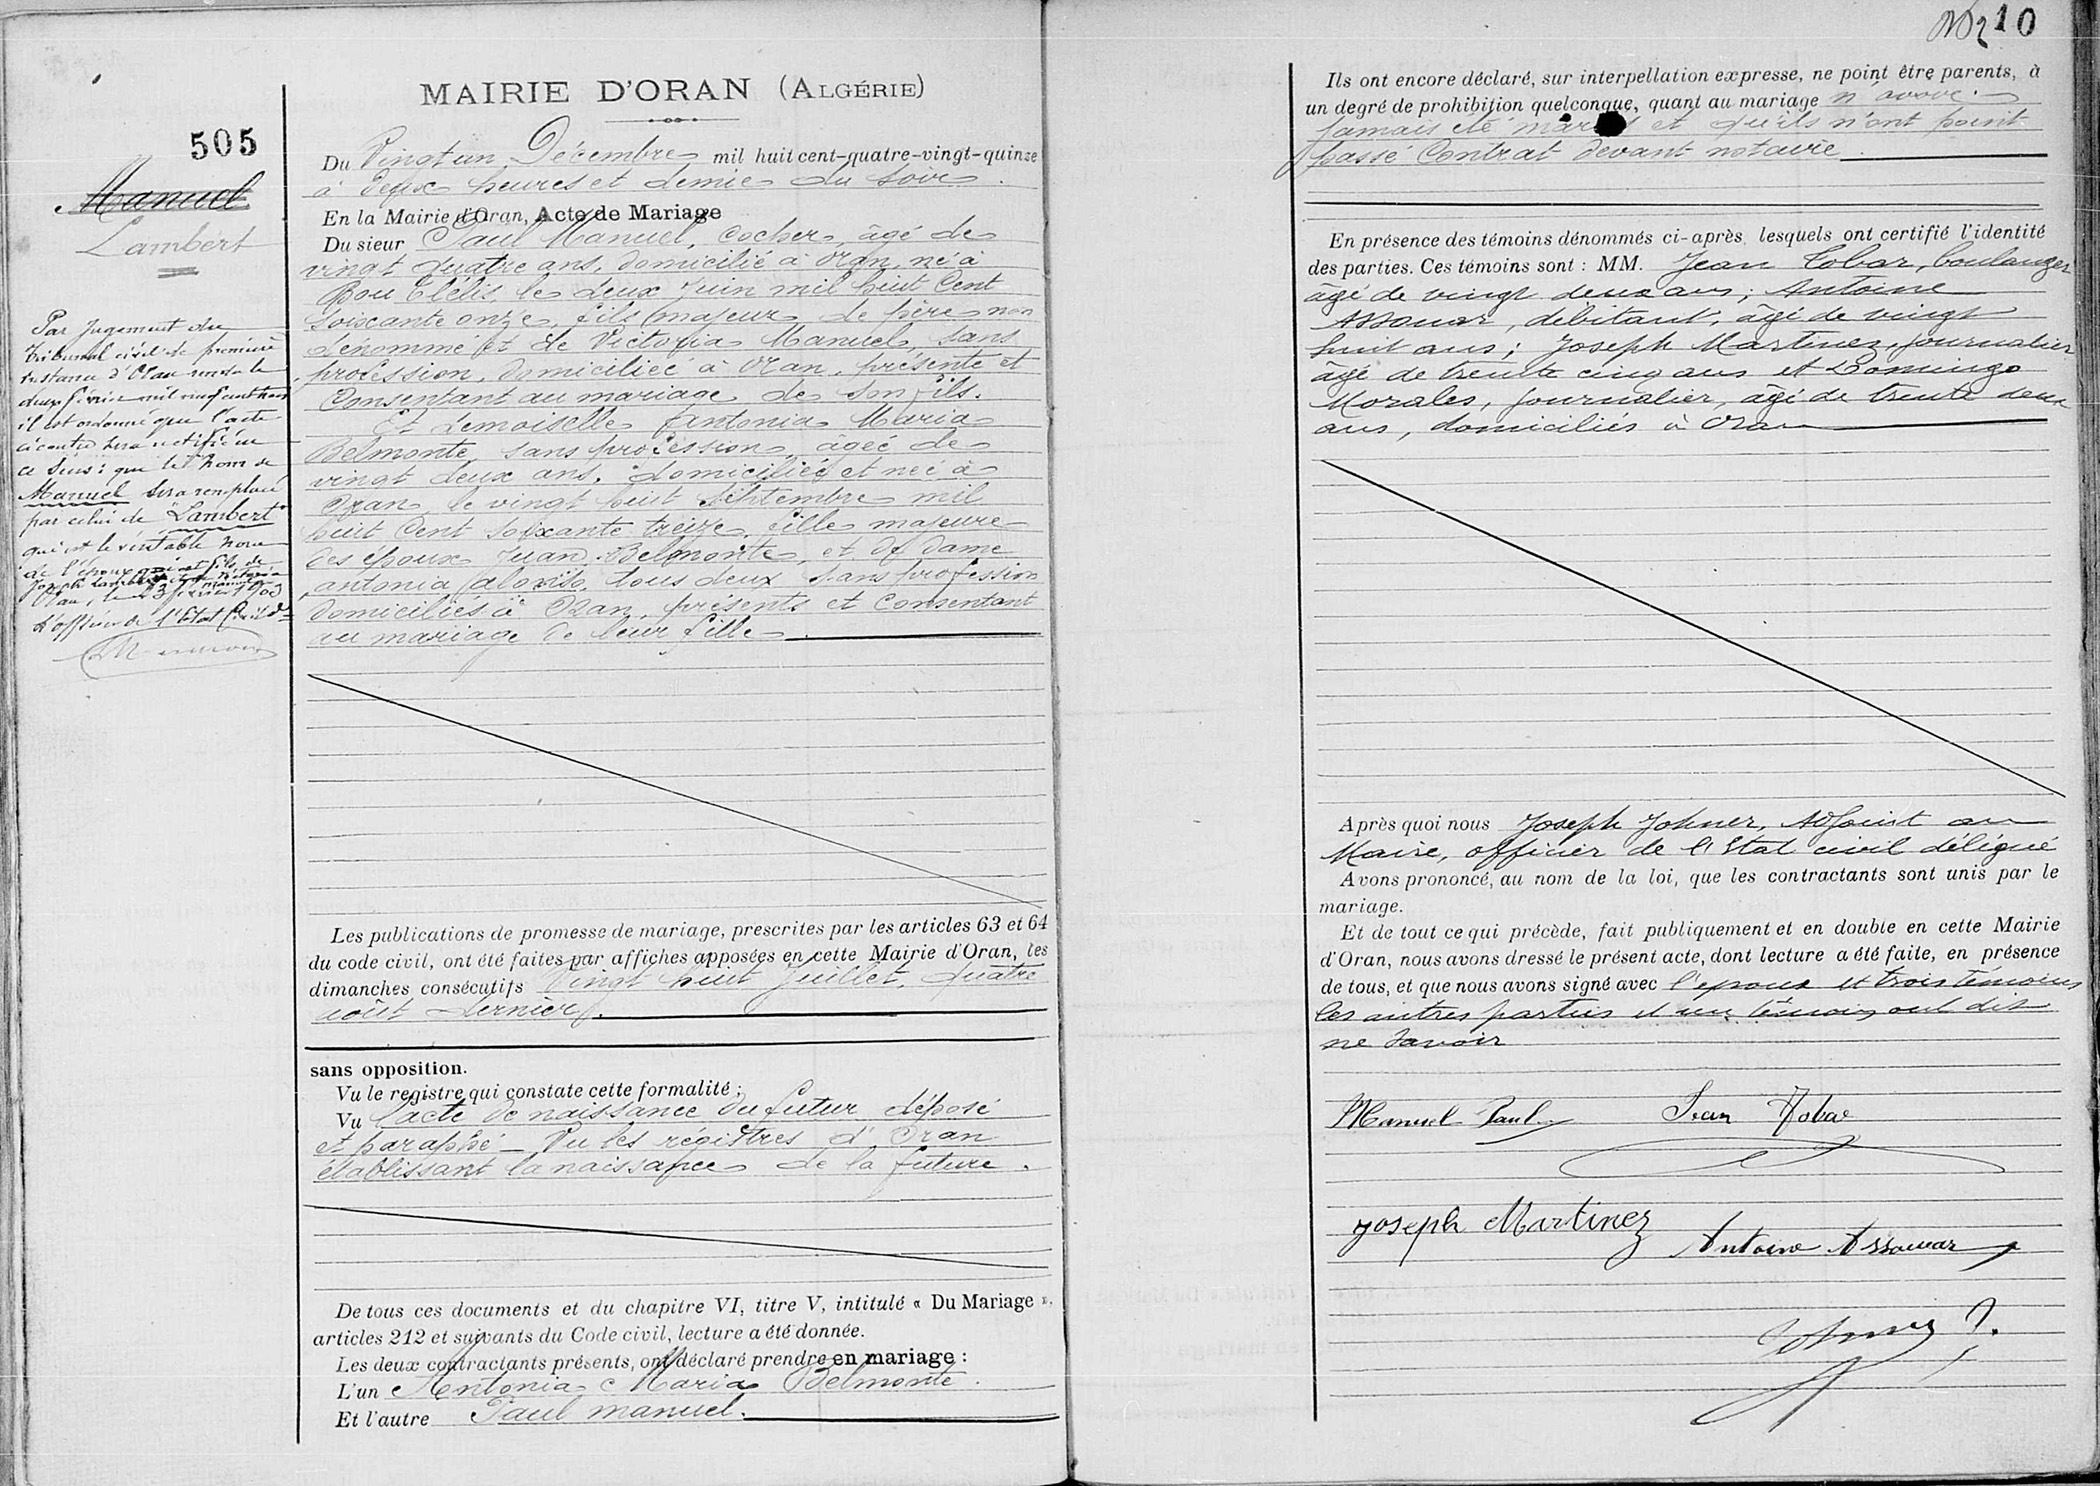 MAIRIE D'ORAN (ALGÉRIE)
505
Manuel
Lambert
Par jugement du
tribunal civil de première
instance d'Oran rendu le
deux février mil neuf cent trois
il est ordonné que l'acte
ci contre sera rectifié en
ce sens: que le nom de
Manuel sera remplacé
par celui de Lambert
qui est le véritable nom
de l'époux qui est fils de
Joseph Lambert et de Victoria
Oran, le 23 février 1903
L'officier de l'Etat Civil
Du Vingt un Décembre mil huit cent-quatre-vingt-quinze
à deux heures et demie du soir.
En la Mairie d'Oran, Acte de Mariage
Du sieur Paul Manuel, cocher, âgé de
vingt quatre ans, domicilié à Oran, né à
Bou Tlélis, le deux Juin mil huit Cent
soixante onze, fils majeur de père non
dénommé et de Victoria Manuel, sans
profession, domiciliée à Oran, présente et
Consentant au mariage de son fils.
Et demoiselle Antonia Maria
Belmonte, sans profession, âgée de
vingt deux ans, domiciliée et née à
Oran, le vingt huit Septembre mil
huit Cent soixante treize, fille majeure
des époux Juan Belmonte, et de dame
antonia alonso, tous deux sans profession
domiciliés à Oran, présents et Consentant
au mariage de leur fille.
Les publications de promesse de mariage, prescrites par les articles 63 et 64
du code civil, ont été faites par affiches apposées en cette Mairie d'Oran, les
dimanches consécutifs Vingt huit Juillet, quatre
août dernier.
sans opposition.
Vu le registre qui constate cette formalité;
Vu l'acte de naissance du futur déposé
et paraphé - Vu les régistres d'Oran
établissant la naissance de la future.
De tous ces documents et du chapitre VI, titre V, intitulé « Du Mariage »,
articles 212 et suivants du Code civil, lecture a été donnée.
Les deux contractants présents, ont déclaré prendre en mariage:
L'un Antonia Maria Belmonte.
Et l'autre Paul manuel.
210
Ils ont encore déclaré, sur interpellation expresse, ne point être parents, à
un degré de prohibition quelconque, quant au mariage n'avoir
Jamais été mariés et qu'ils n'ont point
passé Contrat devant notaire.
En présence des témoins dénommés ci-après, lesquels ont certifié l'identité
des parties. Ces témoins sont: MM. Jean Tobar, boulanger
âgé de vingt deux ans; Antoine
Assouar, débitant, âgé de vingt
huit ans; Joseph Martinez, journalier
âgé de trente cinq ans et Domingo
Morales, journalier, âgé de trente deux
ans, domiciliés à Oran
Après quoi nous Joseph Johner, Adjoint au
Maire, officier de l'Etat civil délégué
Avons prononcé, au nom de la loi, que les contractants sont unis par le
mariage.
Et de tout ce qui précède, fait publiquement et en double en cette Mairie
d'Oran, nous avons dressé le présent acte, dont lecture a été faite, en présence
de tous, et que nous avons signé avec l'époux et trois témoins
les autres parties et un témoin ont dit
ne savoir
Manuel Paul Jean Tobar
Joseph Martinez
Antoine Assouar
Johner J.